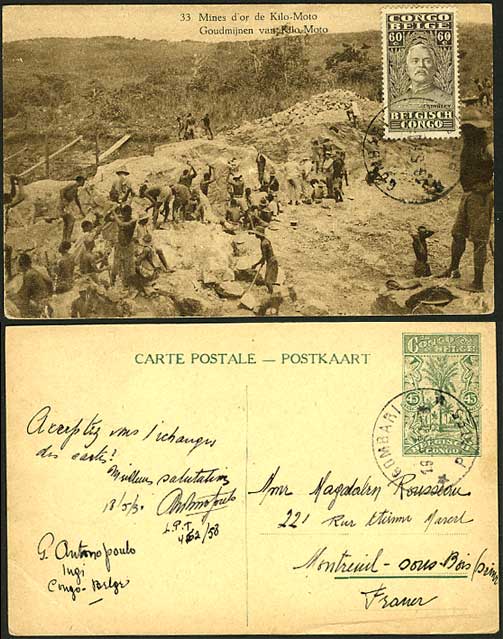 33 Mines d'or de Kilo-Moto
Goudmijnen van Kilo-Moto
CONGO BELGE
60 c 60 c
STANLEY
BELGISCH CONGO
CARTE POSTALE — POSTKAART
CONGO BELGE
45 45
BELGISCH CONGO
GOMBARI
Acceptez vous l'échanges
des cartes?
Meilleures salutations
18/5/31
Antonopoulo
L.P.T.
462/58
G. Antonopoulo
Ingi
Congo-Belge
Mme Magdalen Roussiau
221 Rue Etienne Marcel
Montreuil-sous-Bois
France